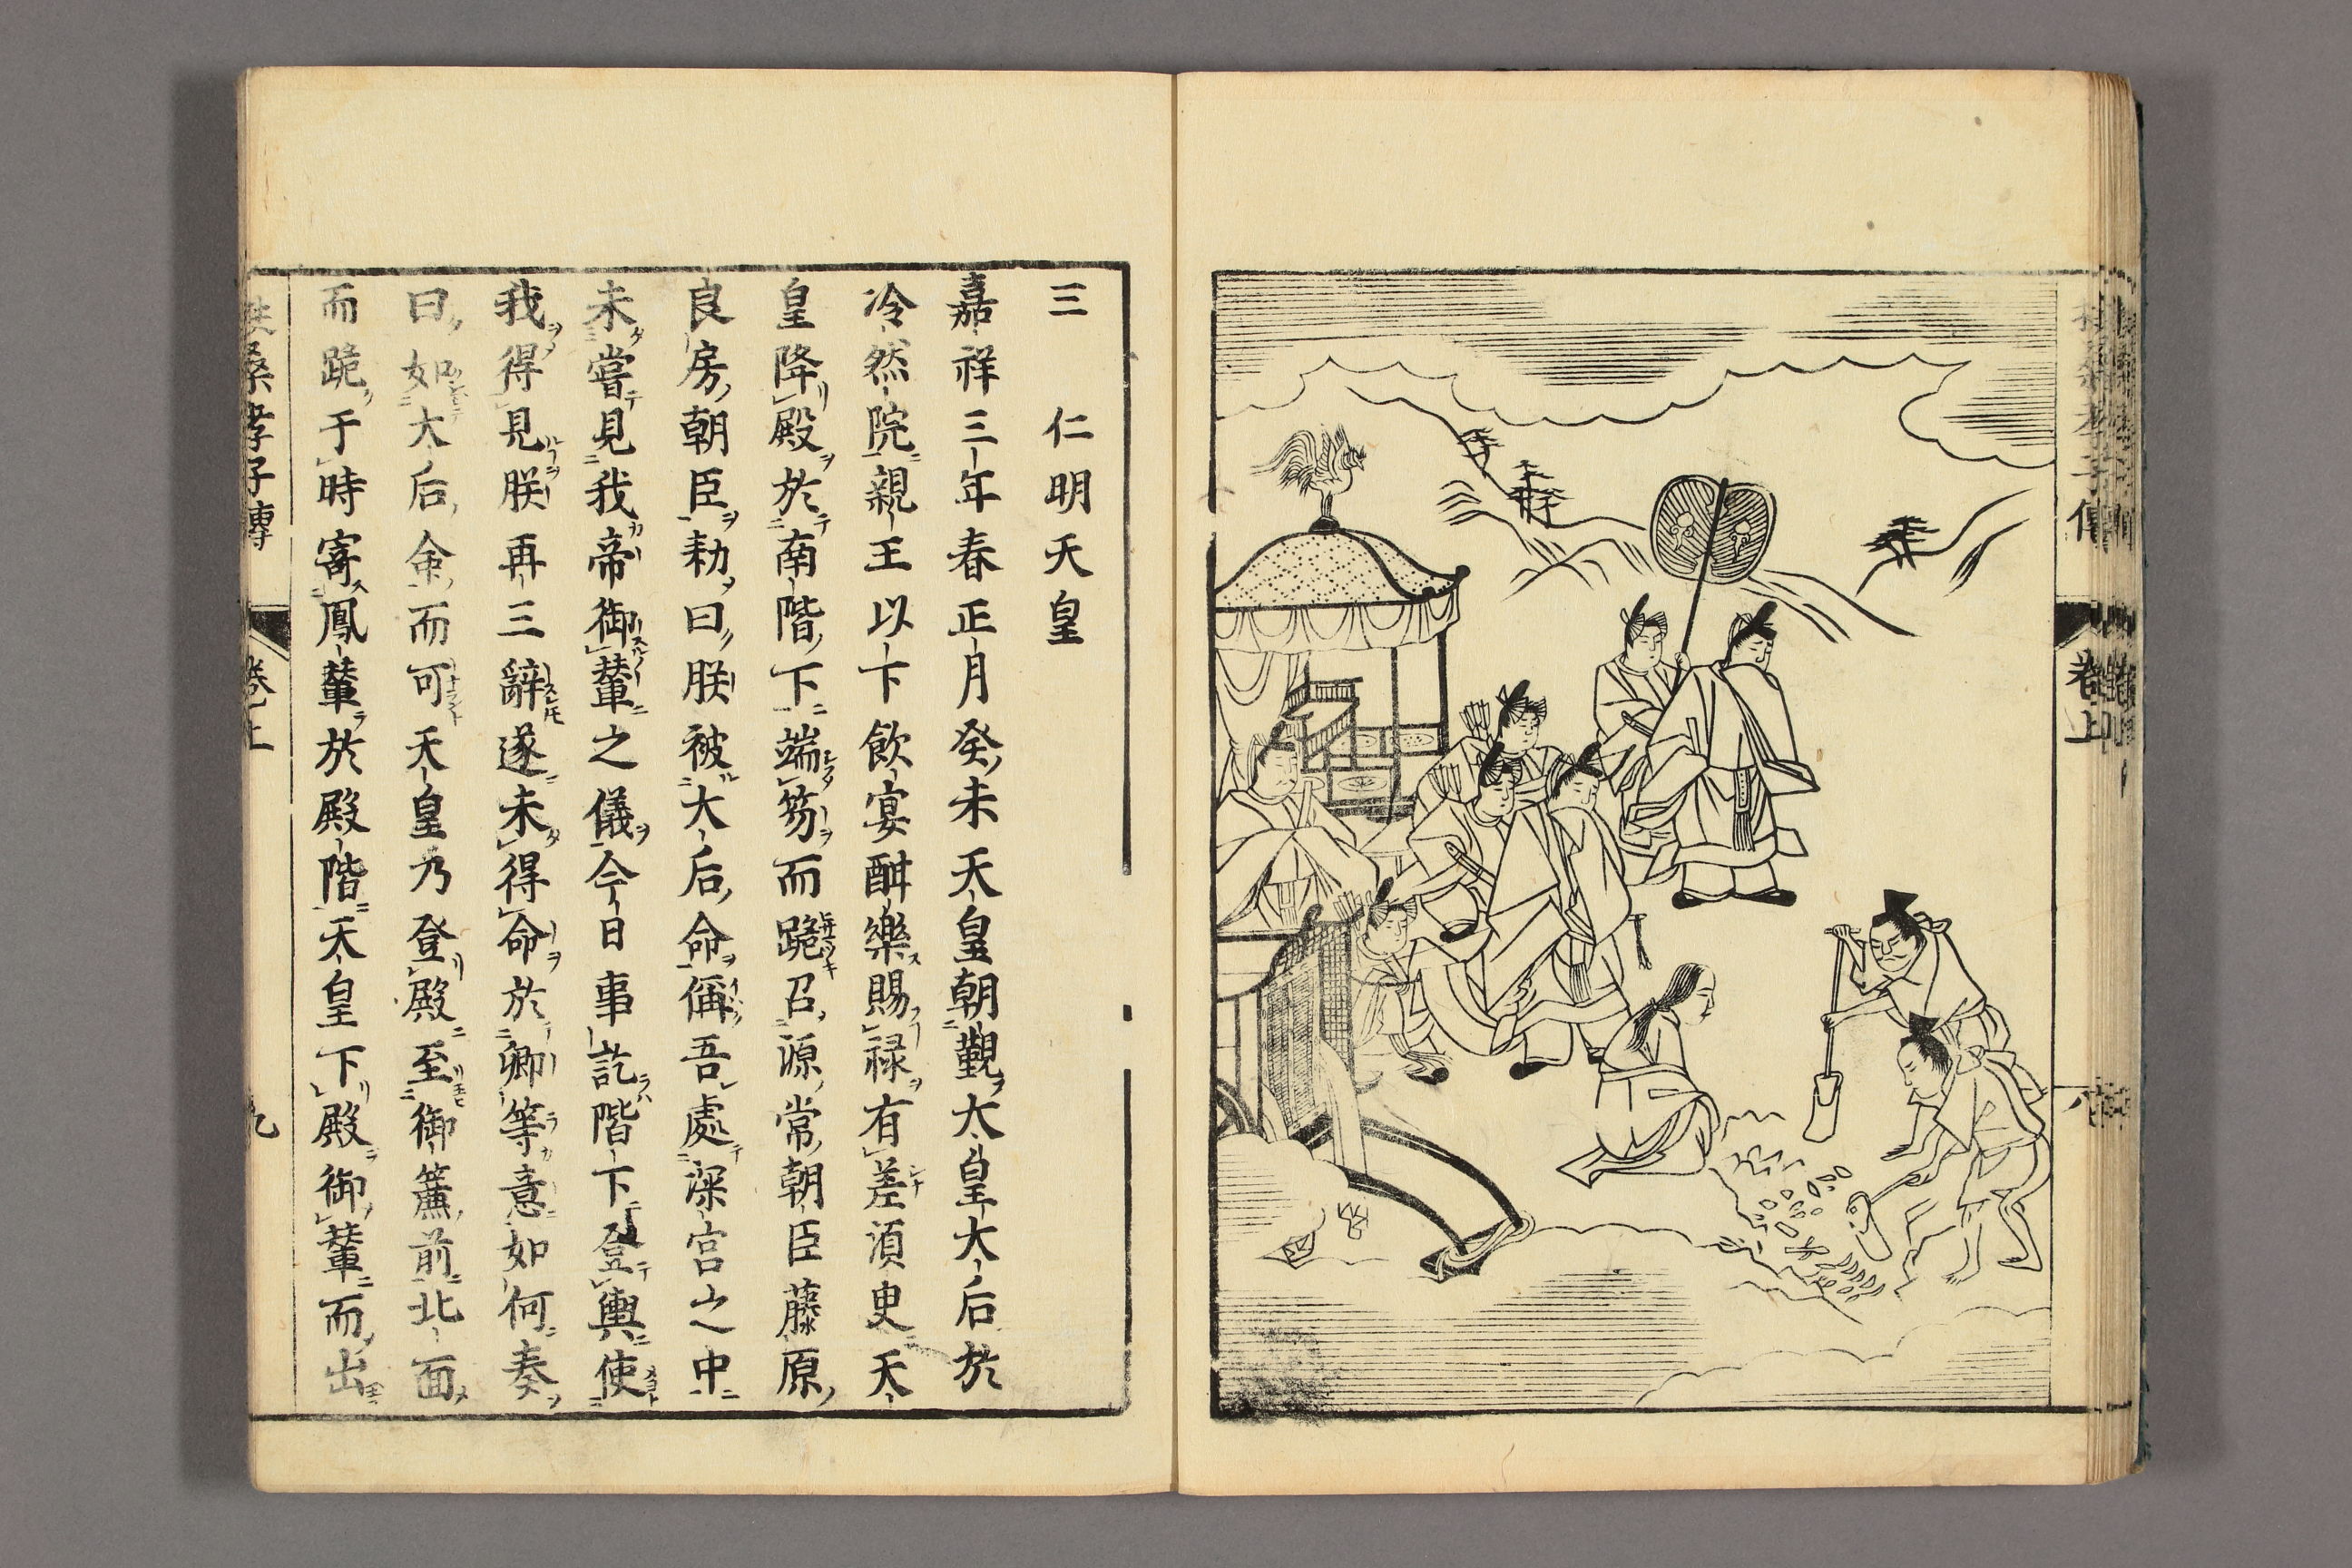 孝子傳
卷上
三　仁明天皇
嘉祥三年春正月癸未天皇朝覲太皇大后於
冷然院親王以下飲宴酣樂賜祿有差須臾天
皇降殿於南階下端笏而跪召源常朝臣藤原
良房朝臣勅曰朕被大后命偁吾處深宮之中
未嘗見我帝御輦之儀今日事訖階下登輿使
我得見朕再三辭遂未得命於卿等意如何奏
曰如大后命而可天皇乃登殿至御簾前北面
而跪于時寄鳳輦於殿階天皇下殿御輦而出
桑孝子傳
卷上
九